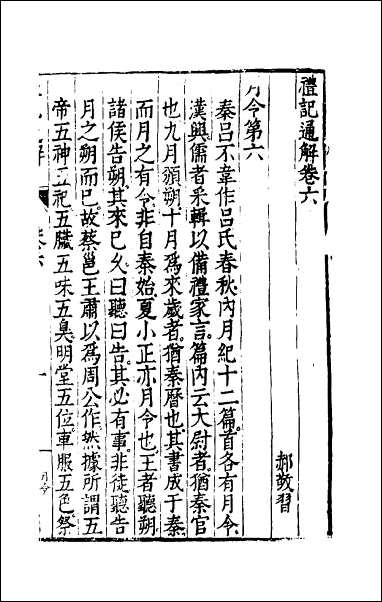 禮記通解卷六
郝敬習
月令第六
秦呂不韋作呂氏春秋內月紀十二篇首各有月令
漢興儒者采輯以備禮家言篇內云大尉者猶秦官
也九月頒朔十月爲來歲者猶秦曆也其書成于秦
而月之有令非自秦始夏小正亦月令也王者聽朔
諸侯告朔其來已久曰聽曰告其必有事非徒聽告
月之朔而已故蔡邕王肅以爲周公作然據所謂五
帝五神五祀五臟五味五臭明堂五位車服五色祭
月令